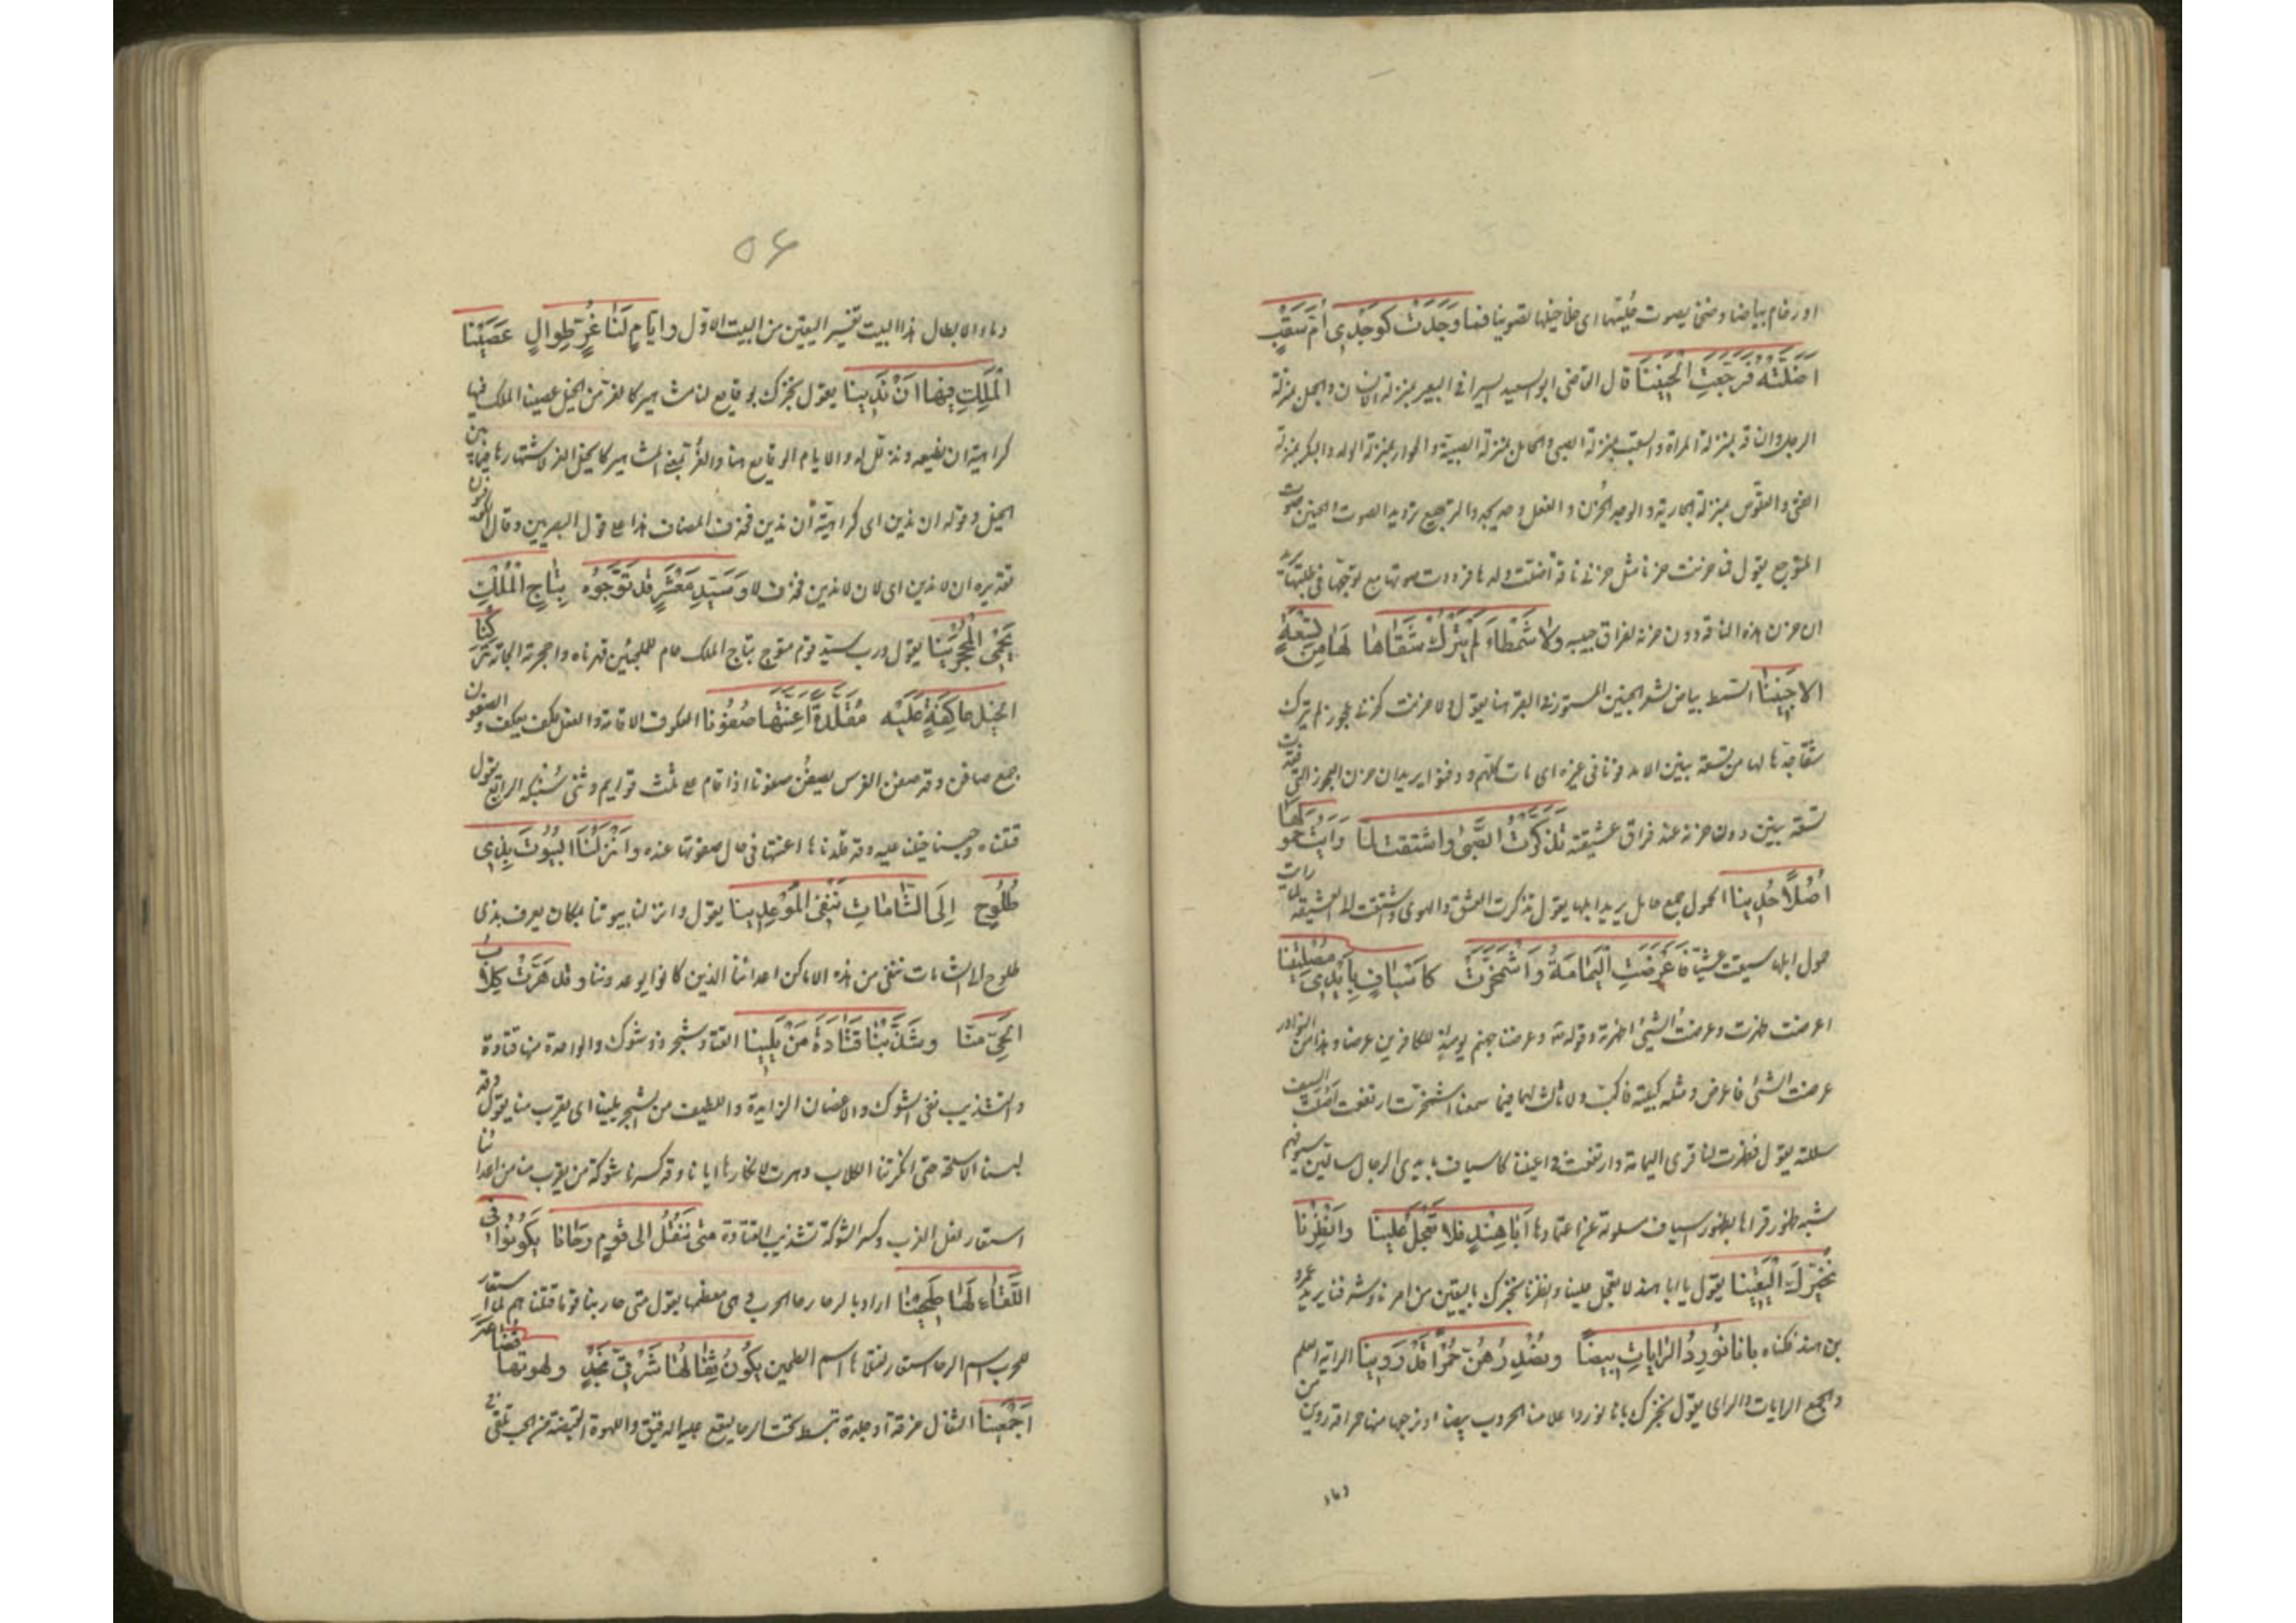 او رخام بياضا وضخما يصوت حليهما اى خلاخيلهما تصويتا فَما وَجَدَتْ كَوَجْدِى أُمُّ سَقْبٍ
اَضَلَّتْهُ فَرَجَّعَتِ الْحَنِينَا قال القاضى ابو سعيد السيرافى البعير بمنزلة الانسان والجمل بمنزلة
الرجل والناقة بمنزلة المرأة والسقب بمنزلة الصبى والحائل بمنزلة الصبية والحوار بمنزلة الولد والبكر بمنزلة
الفتى والقلوص بمنزلة الجارية والوجد الحزن والفعل وجد يجد والترجيع ترديد الصوت والحنين صوت
المتوجع يقول فما حزنت حزنا مثل حزنى ناقة اضلت ولدها فرددت صوتها مع توجعها فى طلبها
ان حزن هذه الناقة دون حزنه لفراق حبيبه ولا شَمْطَاءَ لَمْ يَتْرُكْ شَقَاهَا لَهَا مِن تِسْعَةٍ
الا جَنِينَا الشمط بياض الشعر الجنين المستور فى القبر هنا يقول ولا حزنت كحزنى عجوز لم يترك
شقاء جدها لها من تسعة بنين الا مدفونا فى قبره اى مات كلهم ودفنوا يريد ان حزن العجوز التى فقدت
تسعة بنين دون حزنه عند فراق عشيقته تَذَكَّرْتُ الصِّبَى واشتقت لمّا رَاَيْتُ حُمُولَهَا
اُصُلًا حُدِينَا الحمول جمع حامل يريد ابلها يقول تذكرت العشق والهوى واشتقت الى العشيقة لما رايت
حمول ابلها سيقت عشيا فَاَعْرَضَتِ الْيَمَامَةُ وَاشْمَخَرَّتْ كَاَسْيَافٍ بِاَيْدِى مُصْلِتِينَا
اعرضت ظهرت وعرضت الشيئ اظهرته وقوله تعه وعرضنا جهنم يومئذ للكافرين عرضا وهذا من النوادر
عرضت الشئ فاعرض ومثله كببته فاكب ولا ثالث لهما فيما سمعنا اشمخرت ارتفعت اصلت السيف
سللته يقول فظهرت لنا قرى اليمامة وارتفعت فى اعيننا كاسياف بايدى الرجال سالين سيوفهم
شبه ظهور قراها بظهور اسياف مسلولة عن اغمادها اَبَا هِنْدٍ فَلا تَعْجَلْ عَلَيْنَا وَاَنْظِرْنَا
نُخَبِّرْكَ الْيَقِينَا يقول يا ابا هند لا تعجل علينا وانظرنا نخبرك باليقين من امرنا وشرفنا يريد عمرو
بن هند فكناه بِاَنَّا نُورِدُ الرَّايَاتِ بِيضًا وَنُصْدِرُهُنَّ حُمْرًا قَدْ رَوِينَا الراية العلم
والجمع الرايات والراى يقول نخبرك بانا نورد اعلامنا الحروب بيضا ونرجعها منها حمرا قد روين من
دماء
۵۶
دماء الابطال هذا البيت تفسير اليقين من البيت الاوّل وَاَيَّامٍ لَنَا غُرٍّ طِوَالٍ عَصَيْنَا
الْمَلِكَ فِيهَا اَنْ نَدِينَا يقول نخبرك بوقايع لنا مشاهير كالغر من الخيل عصينا الملك فيها
كراهية ان نطيعه ونتذلل له والايام الوقايع هنا والغر بمعنى المشاهير كالخيل الغر لاشتهارها فيما بين
الخيل وقوله ان ندين اى كراهية أن ندين فحذف المضاف هذا على قول البصريين وقال الكوفيون
تقديره ان لا ندين اى لان لا ندين فحذف لا وَسَيِّدِ مَعْشَرٍ قَدْ تَوَّجُوهُ بِتَاجِ الْمُلْكِ
يَحْمِى الْمُحْجَرِينَا يقول ورب سيد قوم متوج بتاج الملك حام للملجئين قهرناه واحجرته الجاته تَرَكْنَا
الْخَيْلَ عَاكِفَةً عَلَيْهِ مُقَلَّدَةً اَعِنَّتَهَا صُفُونَا العكوف الاقامة والفعل عكف يعكف والصفون
جمع صافن وقد صفن الفرس يصفن صفونا اذا قام على ثلث قوايم وثنى سنبكه الرابع يقول
قتلناه وحبسنا خيلنا عليه وقد قلدناها اعنتها فى حال صفونها عنده وَاَنْزَلْنَا الْبُيُوتَ بِذِى
طُلُوحٍ اِلَى الشَّامَاتِ نَنْفِى الْمُوعِدِينَا يقول وانزلنا بيوتنا بمكان يعرف بذى
طلوح الى الشامات ننفى من هذه الاماكن اعداءنا الذين كانوا يوعدوننا وَقَدْ هَرَّتْ كِلَابُ
الْحَىِّ مِنَّا وَشَذَّبْنَا قَتَادَةَ مَنْ يَلِينَا القتاد شجر ذو شوك والواحدة منها قتادة
والتشذيب نفى الشوك والاغضان الزايدة والليف من الشجر يلينا اى يقرب منا يقول وقد
لبسنا الاسلحة حتى انكرتنا الكلاب وهرت لانكارها ايانا وقد كسرنا شوكة من يقرب منا من اعدائنا
استعار لفل الغرب وكسر الشوكة تشذيب القتادة مَتَى نَنْقُلْ اِلَى قَوْمٍ رَحَانَا يَكُونُوا فِى
اللِّقَاءِ لَهَا طَحِينَا اراد بالرحا رحا الحرب وهى معظمها يقول متى حاربنا قوما قتلناهم لما استعار
للحرب اسم الرحا استعار لقتلاها اسم الطحين يَكُونُ ثِقَالُهَا شَرْقِىَّ نَجْدٍ وَلُهْوَتُهَا قُضَاعَةَ
اَجْمَعِينَا الثقال خرقة او جلدة تبسط تحت الرحا ليقع عليها الدقيق واللهوة القبضة من الحب تلقى فى